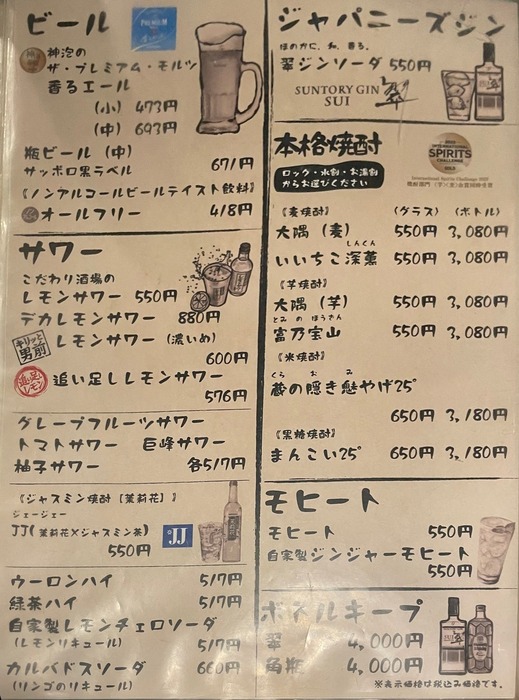 ビール
PREMIUM
神泡の
ザ・プレミアム・モルツ
香るエール
(小) 473円
(中) 693円
瓶ビール (中)
サッポロ黒ラベル 671円
《ノンアルコールビールテイスト飲料》
オールフリー 418円
サワー
こだわり酒場の
レモンサワー 550円
デカレモンサワー 880円
キリッと男前 レモンサワー (濃いめ)
600円
追い足しレモン 追い足しレモンサワー
576円
グレープフルーツサワー
トマトサワー 巨峰サワー
柚子サワー 各517円
《ジャスミン焼酎【茉莉花】》
ジェージェー
JJ(茉莉花×ジャスミン茶)
550円
JJ
ウーロンハイ 517円
緑茶ハイ 517円
自家製レモンチェロソーダ
(レモンリキュール) 517円
カルバドスソーダ 660円
(リンゴのリキュール)
ジャパニーズジン
ほのかに、和、香る。
翠ジンソーダ 550円
SUNTORY GIN
SUI 翠
本格焼酎
ロック・水割・お湯割
からお選びください
INTERNATIONAL
SPIRITS
CHALLENGE
《麦焼酎》 (グラス) (ボトル)
大隅 (麦) 550円 3,080円
しんくん
いいちこ深薫 550円 3,080円
《芋焼酎》
大隅 (芋) 550円 3,080円
とみ の ほうざん
富乃宝山 550円 3,080円
《米焼酎》
くら お み
蔵の隠き魅やげ25°
650円 3,180円
《黒糖焼酎》
まんこい25° 650円 3,180円
モヒート
モヒート 550円
自家製ジンジャーモヒート
550円
ボトルキープ
翠 4,000円
角瓶 4,000円
※表示価格は税込み価格です。